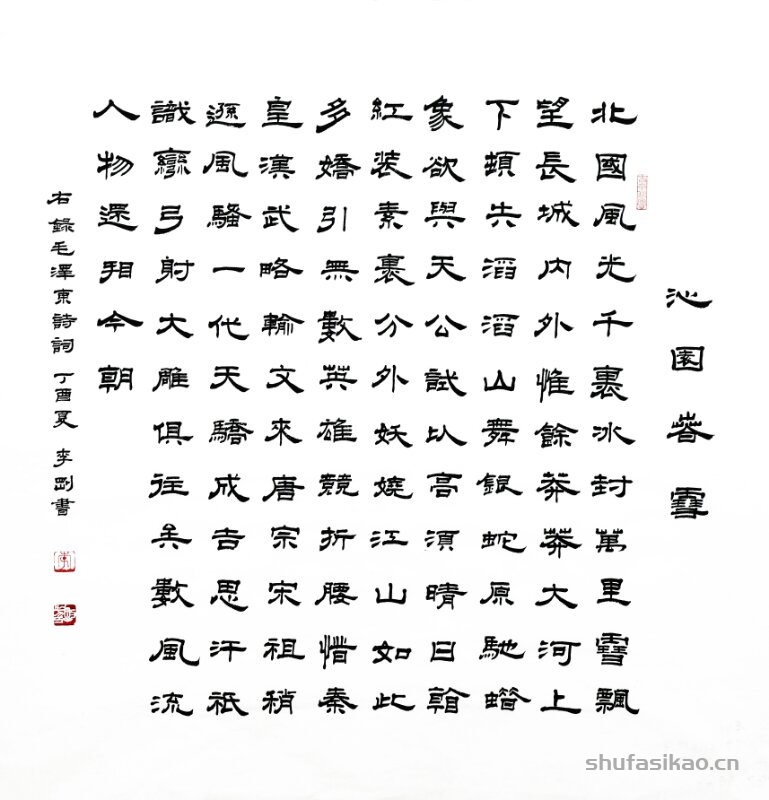 沁園春雪
北國風光千裏冰封萬里雪飄
望長城內外惟餘莽莽大河上
下頓失滔滔山舞銀蛇原馳蠟
象欲與天公試比高須晴日看
紅裝素裹分外妖嬈江山如此
多嬌引無數英雄競折腰惜秦
皇漢武略輸文來唐宗宋祖稍
遜風騷一代天驕成吉思汗祇
識彎弓射大雕俱往矣數風流
人物還看今朝
右錄毛澤東詩詞 丁酉夏 李剛書
shufasikao.cn